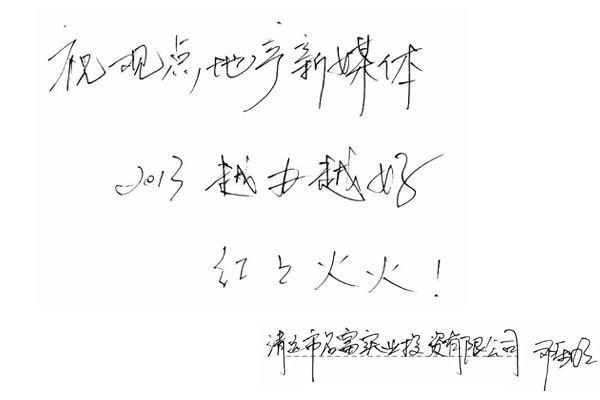 祝观点地产新媒体
2013 越办越好
红红火火！
清远市名富实业投资有限公司